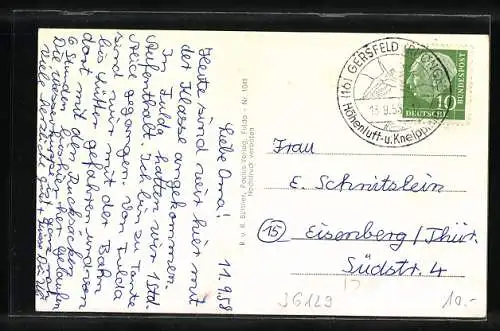 11.9.58
Liebe Oma!
Heute sind wir hier mit
der Klasse angekommen.
In Fulda hatten wir 1 Std.
Aufenthalt. Ich bin zu Tante
gegangen. Von Fulda
sind wir mit der Bahn
bis gefahren und von
dort mit den Rucksäcken
6 Stunden hierher gelaufen.
Die ist ganz nah.
Viele
B. u. R. Verlag, Fulda - Nr. 1041
Nachdruck verboten
(16) GERSFELD (RHÖN)
9.58
Höhenluft-u. Kneipp
DEUTSCHE
BUNDESPOST
10
Frau
E. Schnitzlein
(15) Eisenberg/Thür.
Südstr. 4
J6129
10.-